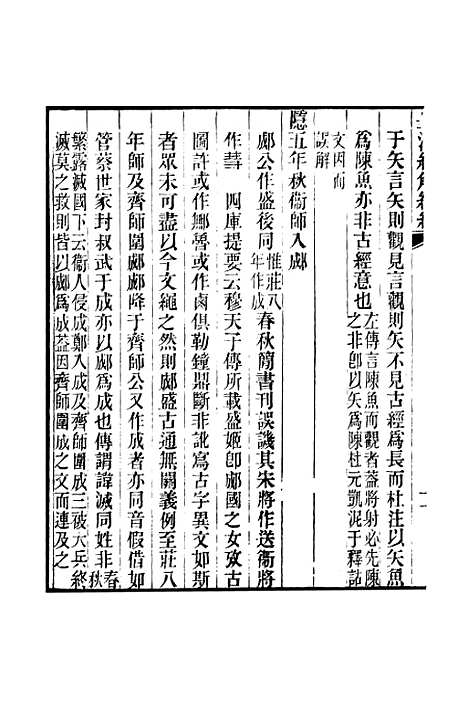 于矢言矢則觀見言觀則矢不見古經爲長而杜注以矢魚
爲陳魚亦非古經意也左傳言陳魚而觀者蓋將射必先陳
之非卽以矢爲陳杜元凱泥于釋詁
文因而
誤解
隱五年秋衞師入郕
郕公作盛後同惟莊八
年作成春秋簡書刊誤譏其宋將作送衞將
作彗 四庫提要云穆天子傳所載盛姬卽郕國之女攷古
圖許或作鄦魯或作鹵俱勒鐘鼎斷非訛寫古字異文如斯
者眾未可盡以今文繩之然則郕盛古通無關義例至莊八
年師及齊師圍郕郕降于齊師公又作成者亦同音假借如
管蔡世家封叔武于成亦以郕爲成也傳謂諱滅同姓非春
秋
繁露滅國下云衞人侵成鄭入成及齊師圍成三被大兵終
滅莫之救則皆以郕爲成蓋因齊師圍成之文而連及之